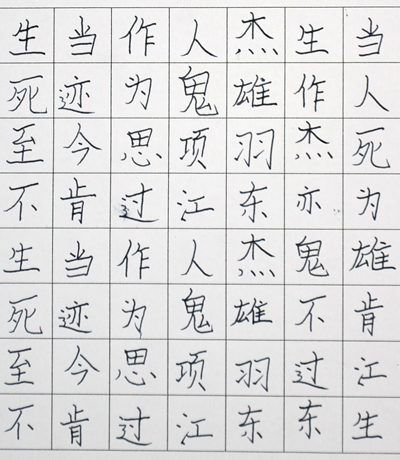 生当作人杰生当
死迹为鬼雄作人
至今思项羽杰死
不肯过江东亦为
生当作人杰鬼雄
死迹为鬼雄不肯
至今思项羽过江
不肯过江东东生